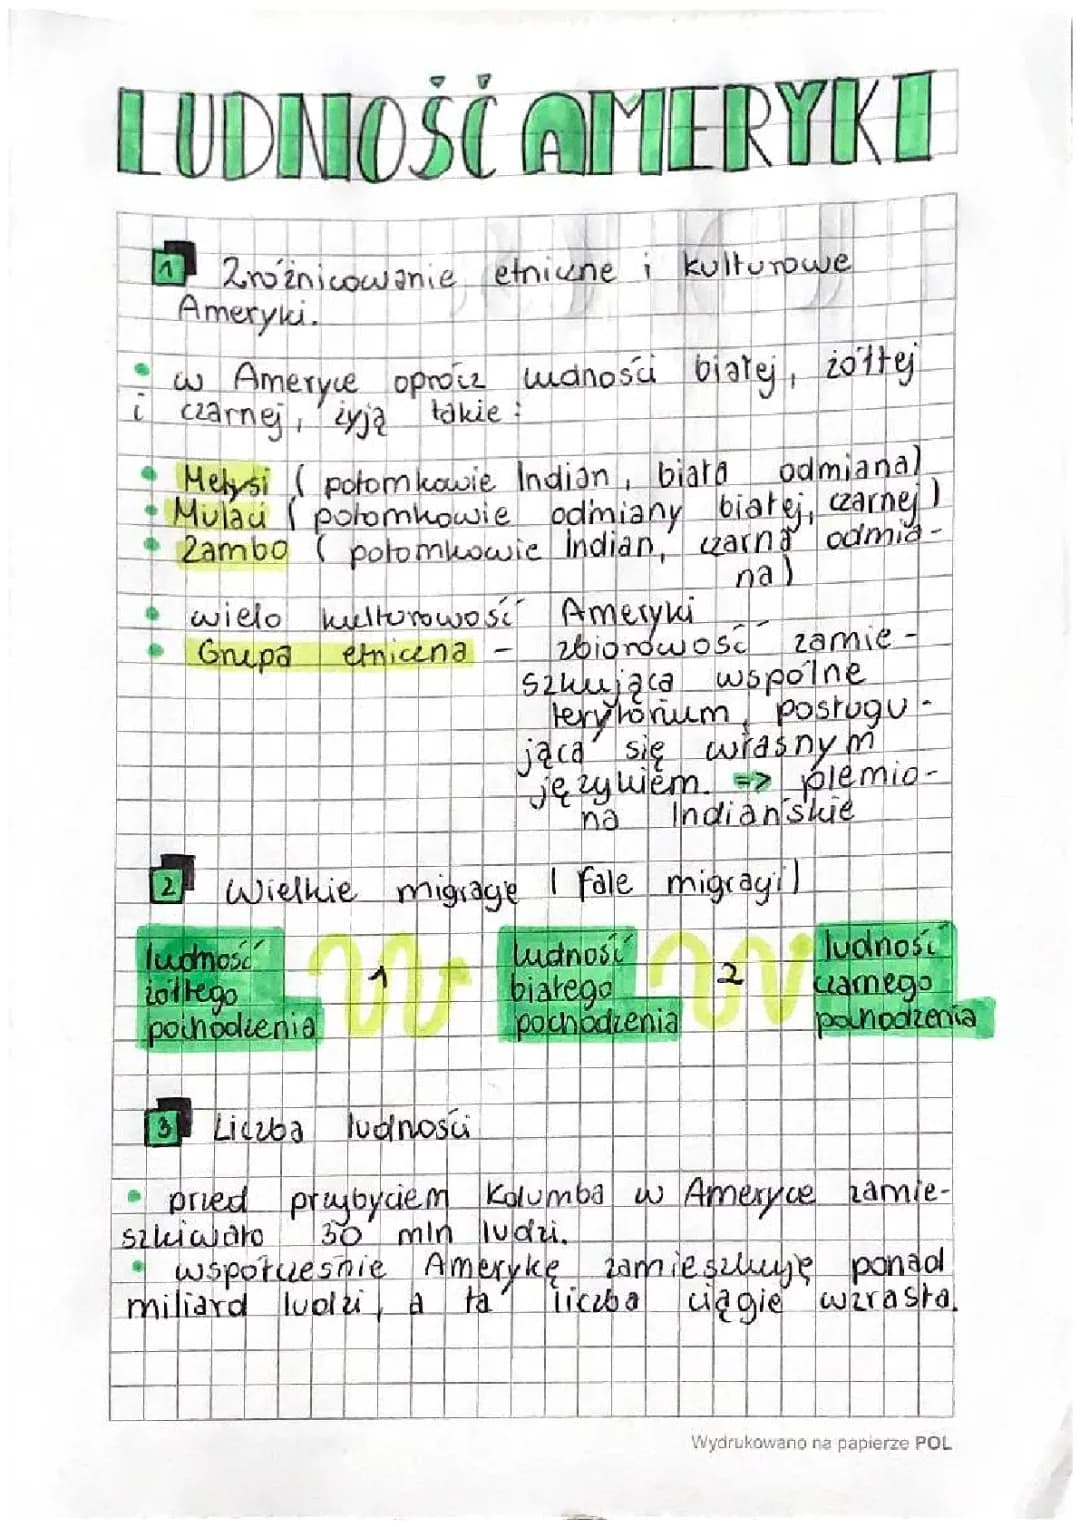 LUDNOŚĆ AMERYKI
1 Zróżnicowanie etniczne i kulturowe
Ameryki.
• w Ameryce oprócz ludności białej, żółtej
i czarnej, żyją takie:
• Metysi (potomkowie Indian, biała odmiana)
• Mulaci (potomkowie odmiany białej, czarnej)
• Zambo (potomkowie Indian, czarna odmia-
na)
• wielo kulturowość Ameryki
• Grupa etniczna - zbiorowość zamie-
szkująca wspólne
terytorium, posługu-
jąca się własnym
językiem. => plemio-
na Indiańskie
2 Wielkie migracje (fale migracji)
ludność
żółtego
pochodzenia
1
ludność
białego
pochodzenia
2
ludność
czarnego
pochodzenia
3 Liczba ludności
• przed przybyciem Kolumba w Ameryce zamie-
szkiwało 30 mln ludzi.
• współcześnie Amerykę zamieszkuję ponad
miliard ludzi, a ta liczba ciągle wzrasta.
Wydrukowano na papierze POL